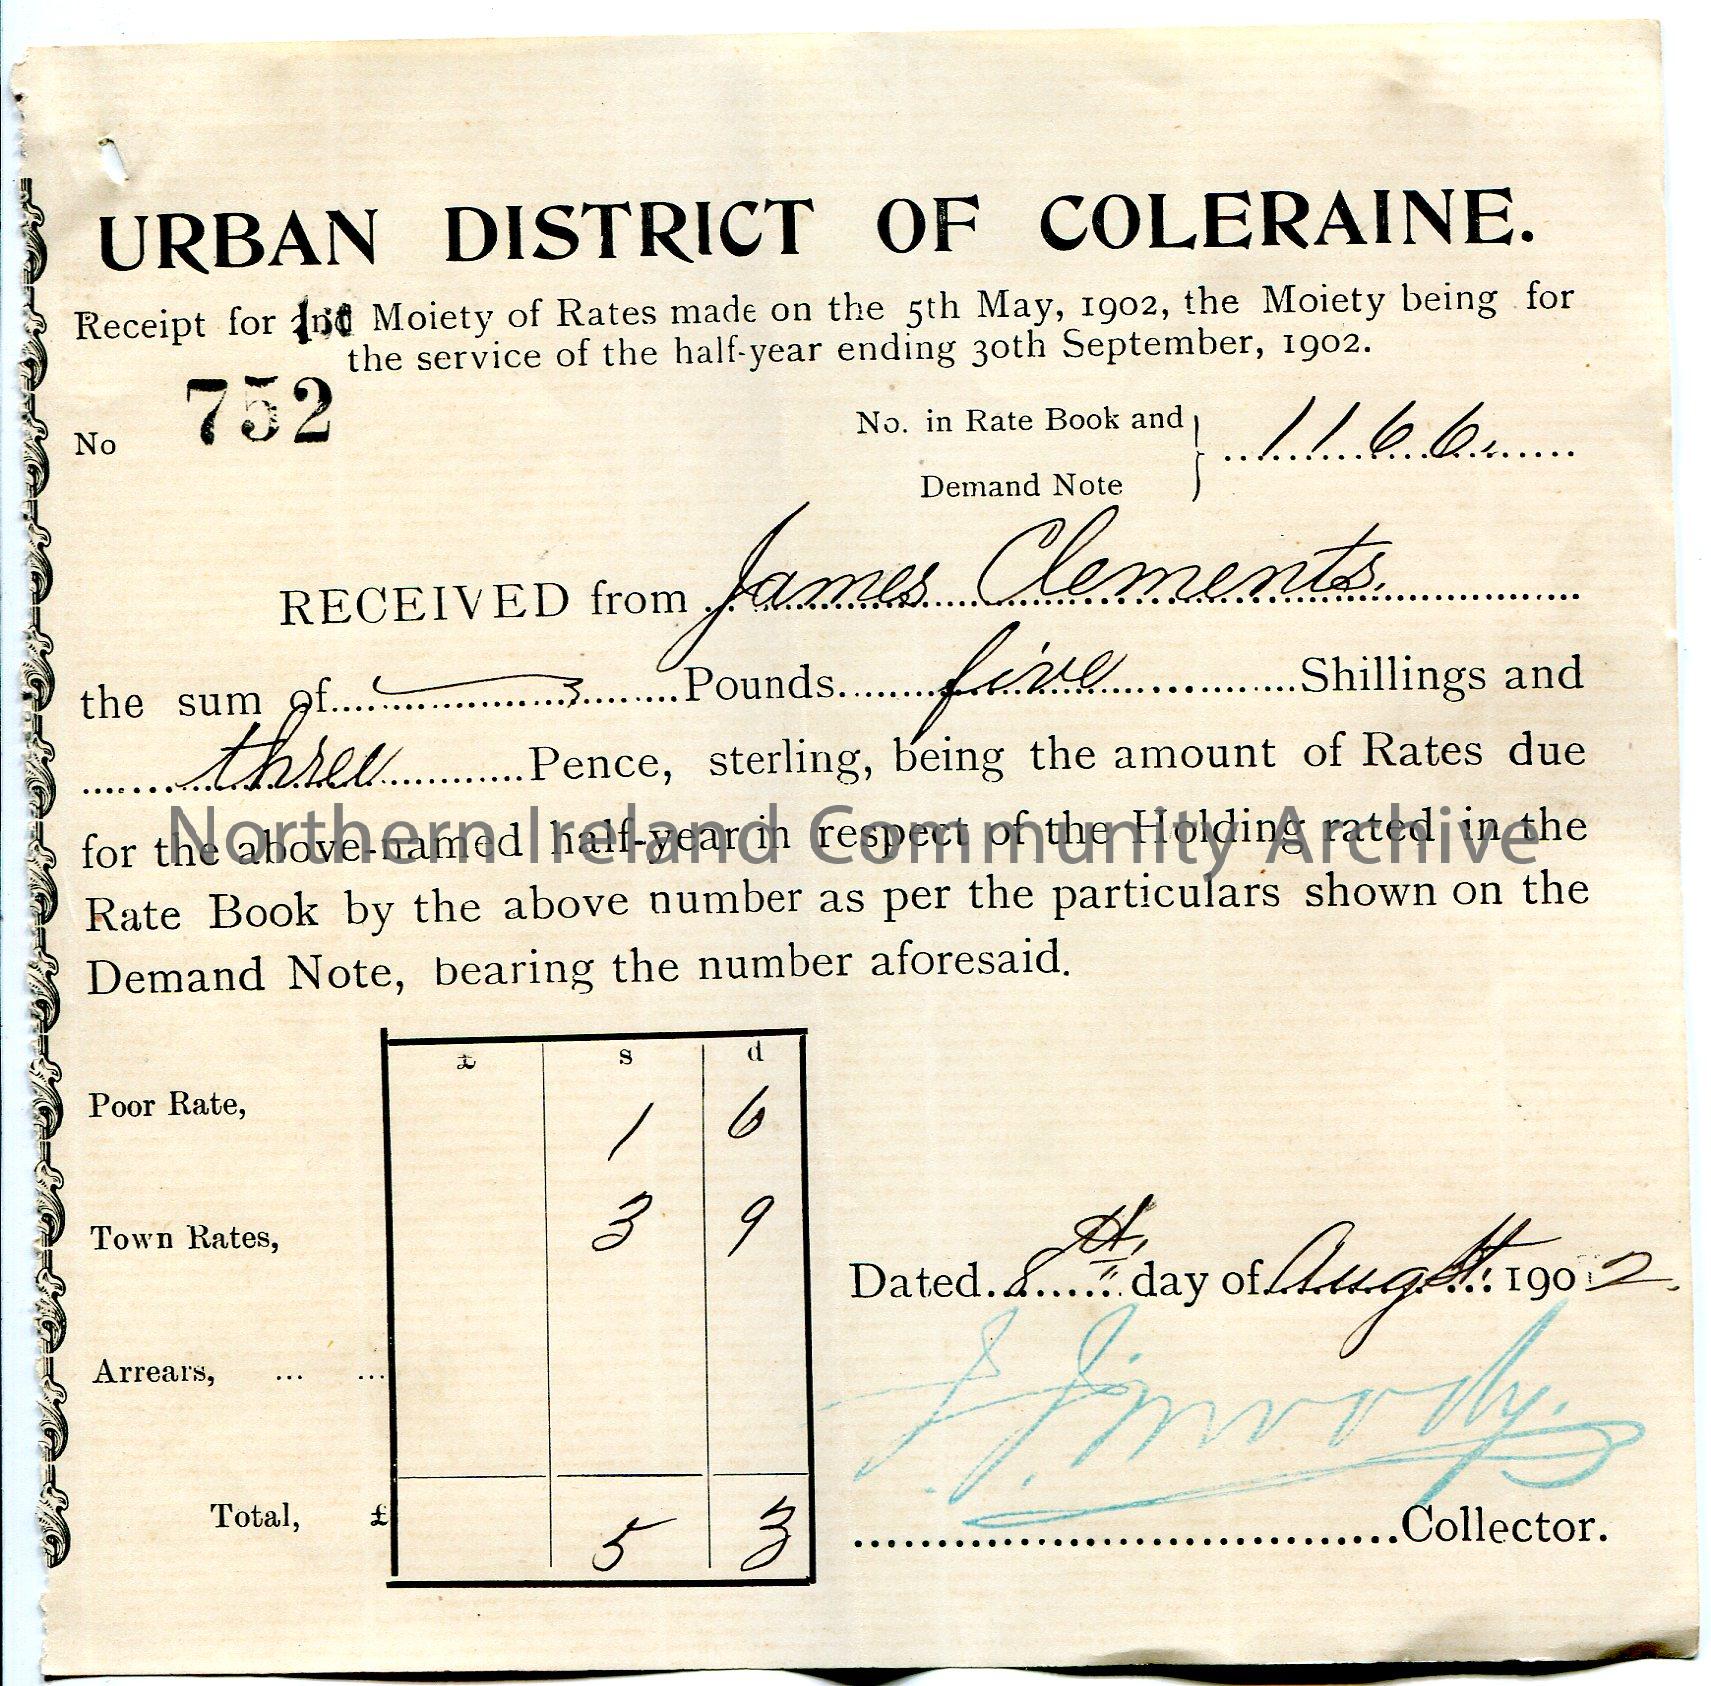 URBAN DISTRICT OF COLERAINE.
Receipt for 1st Moiety of Rates made on the 5th May, 1902, the Moiety being for
the service of the half-year ending 30th September, 1902.
No 752
No. in Rate Book and
Demand Note } 1166.
RECEIVED from James Clements.
the sum of Pounds five Shillings and
three Pence, sterling, being the amount of Rates due
for the above-named half-year in respect of the Holding rated in the
Northern Ireland Community Archive
Rate Book by the above number as per the particulars shown on the
Demand Note, bearing the number aforesaid.
£ s d
Poor Rate, 1 6
Town Rates, 3 9
Dated 8th day of Augst. 1902.
Arrears, ... ...
Total, £ 5 3
Collector.